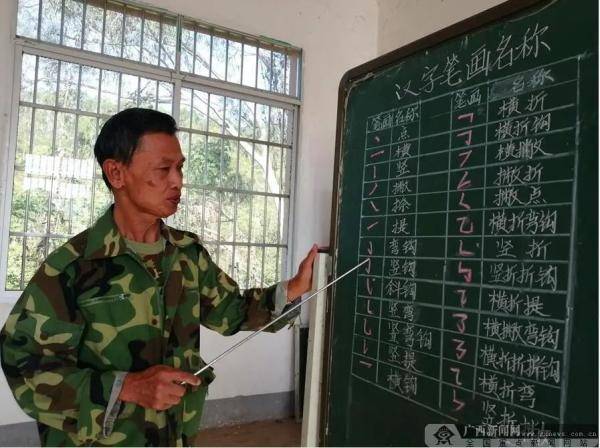 汉字笔画名称
笔画 名称 笔画 名称
点 横折
横 横折钩
竖 横撇
撇 撇折
捺 撇点
提 横折弯钩
弯钩 竖折
竖钩 竖折折钩
斜钩 横折提
竖弯 横撇弯钩
竖弯钩 横折折折钩
竖提 横折弯
横钩 竖折折
广西新闻网
www.gxnews.com.cn